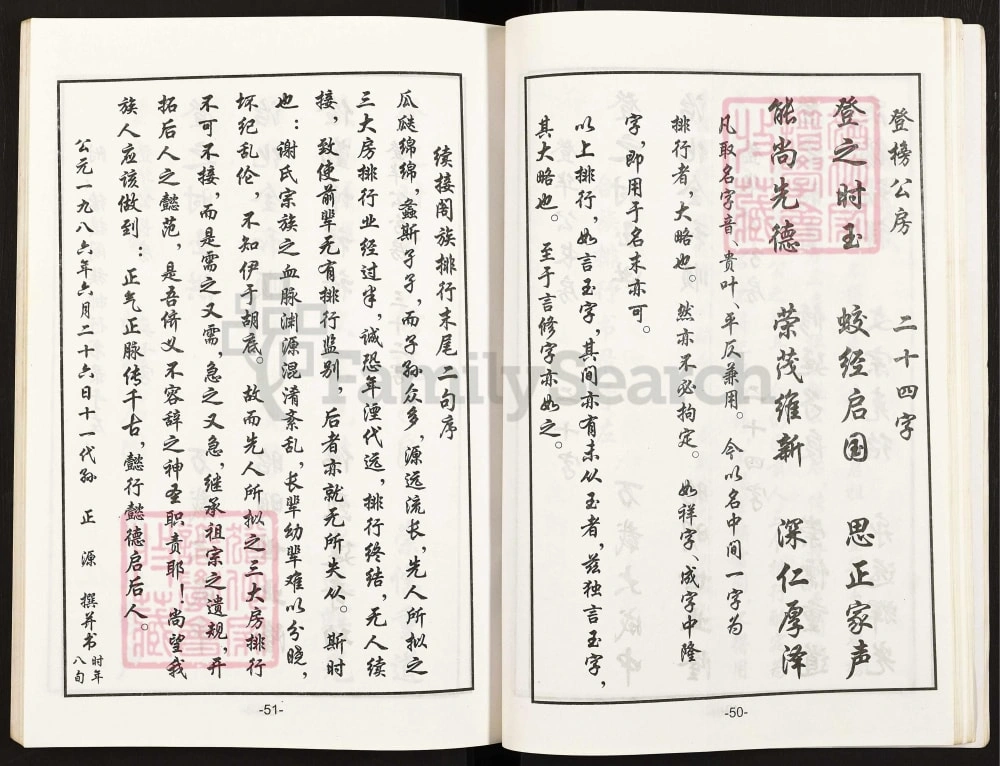 登榜公房　二十四字
登之时玉　蛟经启国　思正家声
能尚先德　荣茂维新　深仁厚泽
凡取名字音、贵叶、平仄兼用。　今以名中间一字为
排行者，大略也。　然亦不必拘定。　如祥字、成字中隆
字，即用于名末亦可。
以上排行，如言玉字，其间亦有未从玉者，兹独言玉字，
其大略也。　至于言修字亦如之。
-50-
续接阁族排行末尾二句序
瓜瓞绵绵，螽斯孑孑，而子孙众多，源远流长，先人所拟之
三大房排行业经过半，诚恐年湮代远，排行终结，无人续
接，致使前辈无有排行监别，后者亦就无所失从。　斯时
也：谢氏宗族之血脉渊源混淆紊乱，长辈幼辈难以分晓，
坏纪乱伦，　不知伊于胡底。　故而先人所拟之三大房排行
不可不接，而是需之又需，急之又急，继承祖宗之遗规，开
拓后人之懿范，是吾侪义不容辞之神圣职责耶！尚望我
族人应该做到：　正气正脉传千古，懿行懿德启后人。
公元一九八六年六月二十六日十一代孙　正　源　撰并书　时年八旬
-51-
FamilySearch